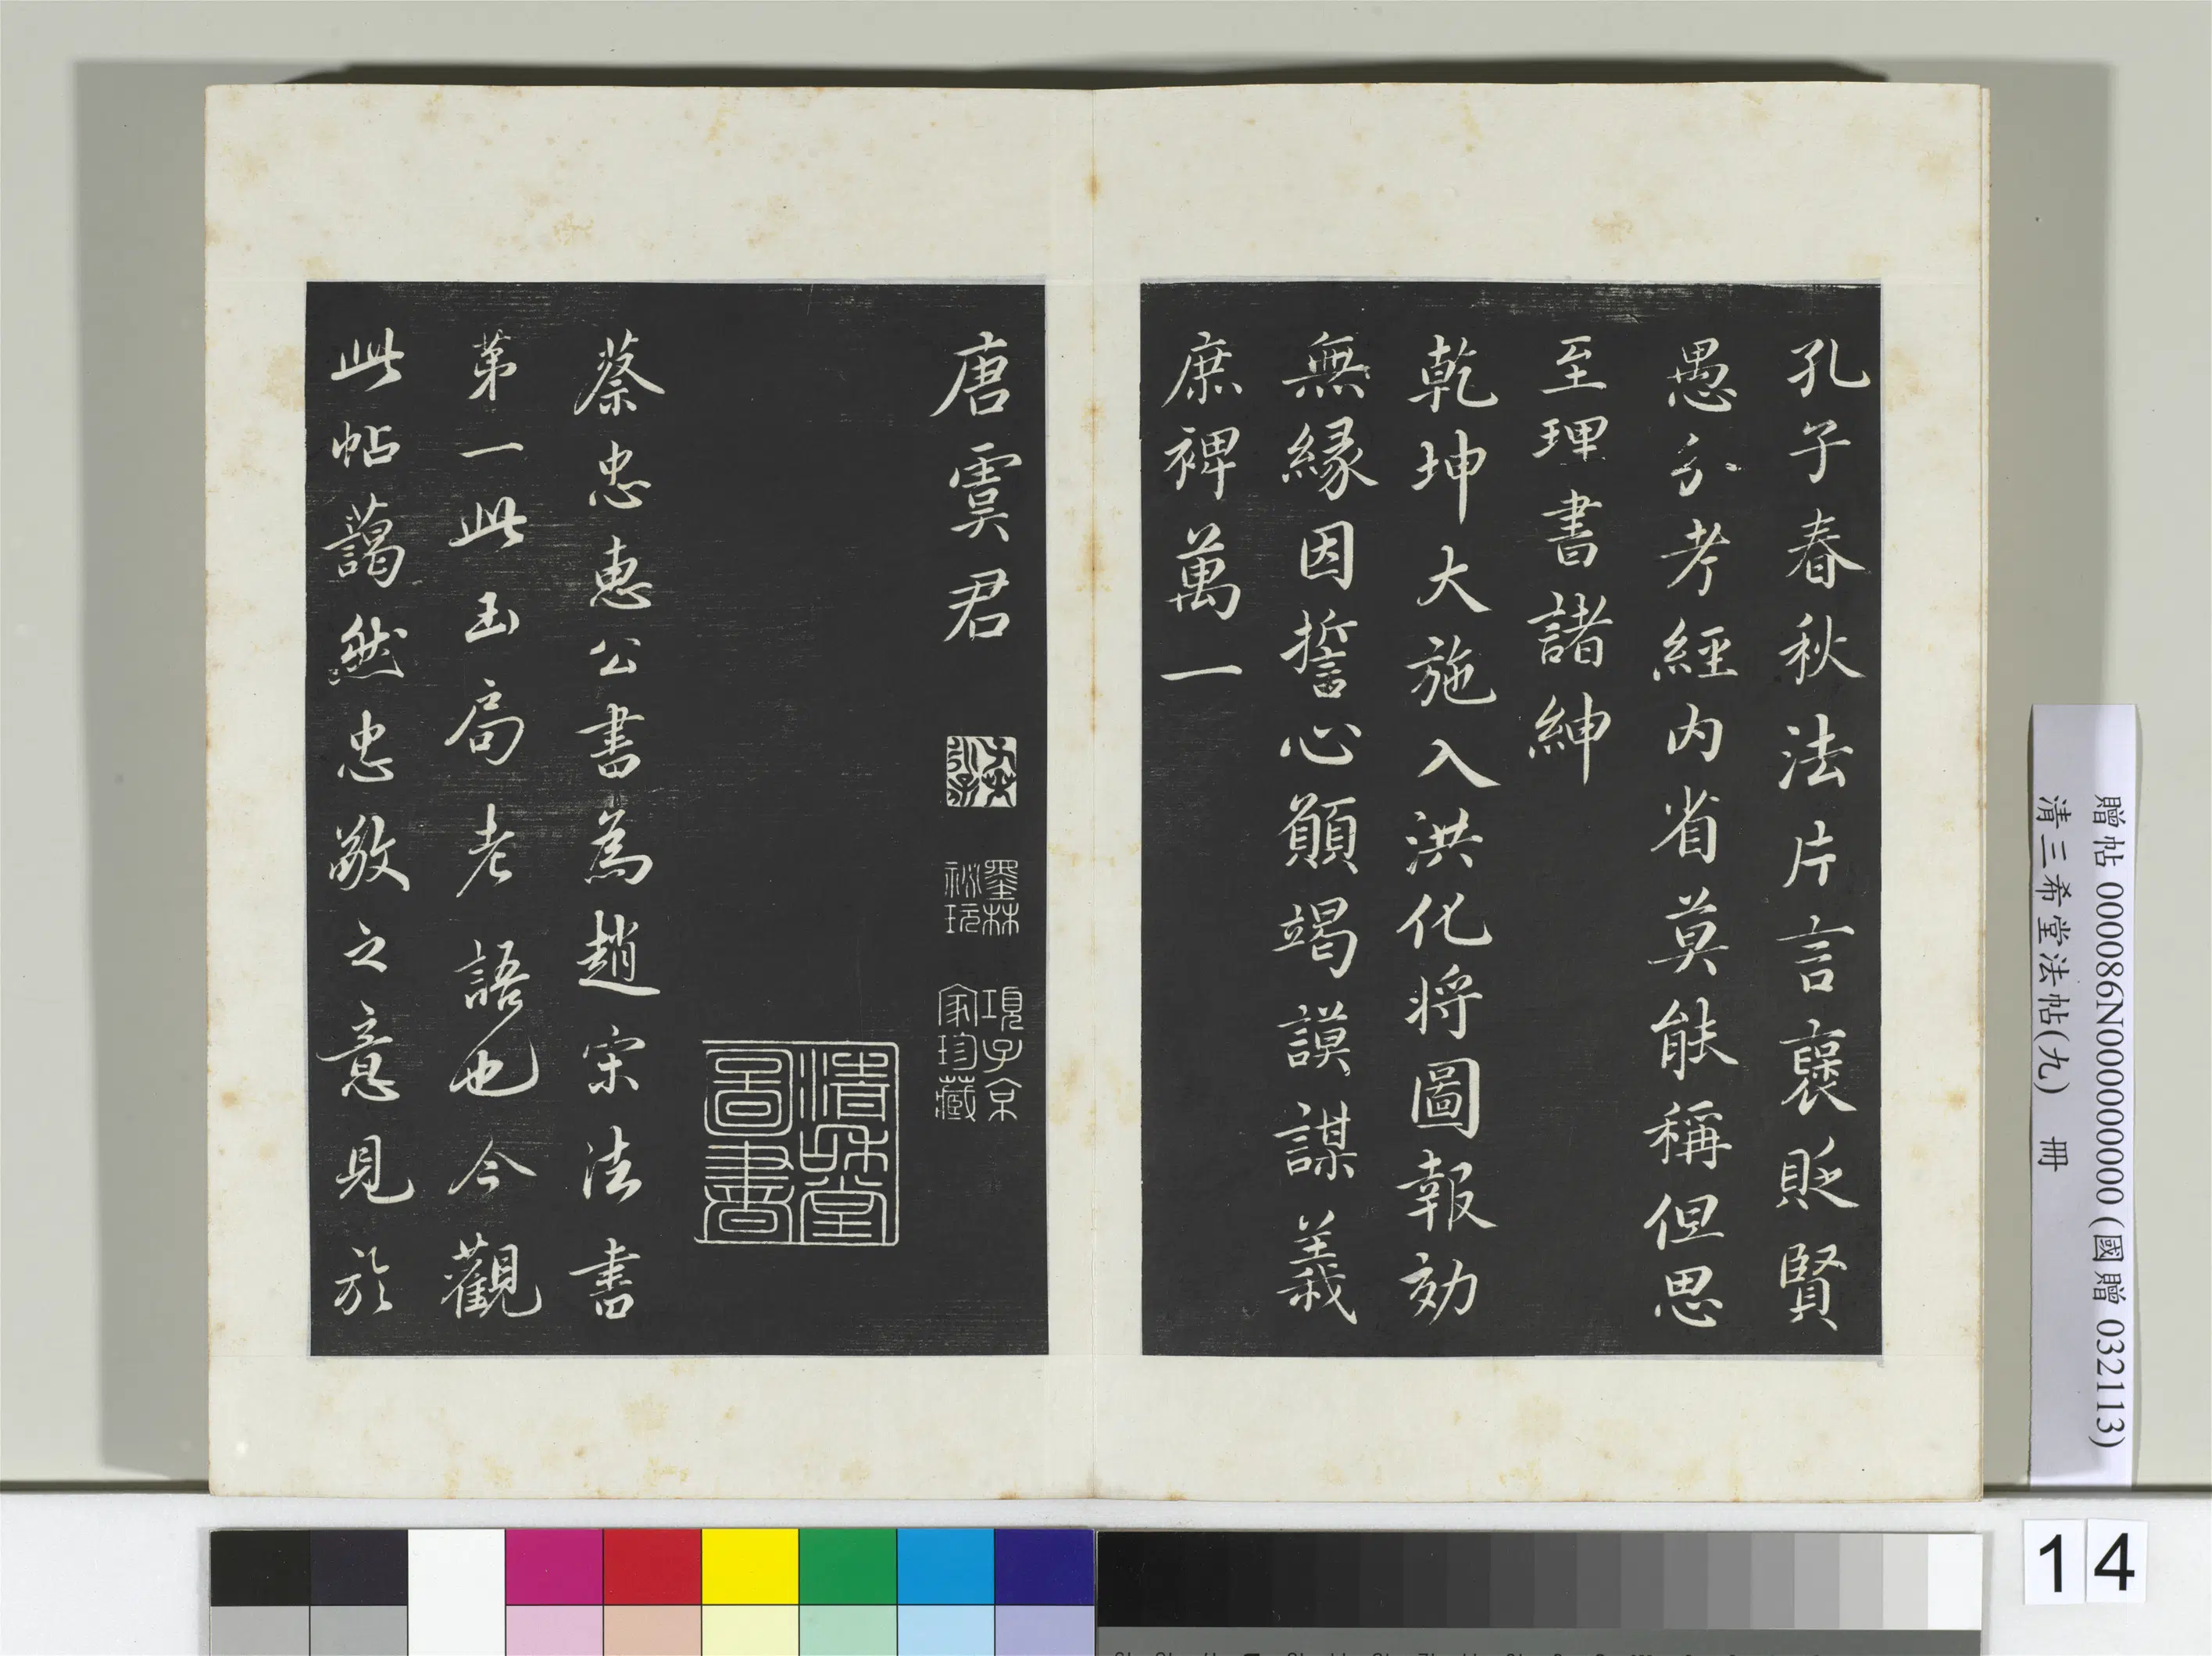 孔子春秋法片言襃貶賢
愚分考經內省莫能稱但思
至理書諸紳
乾坤大施入洪化將圖報効
無緣因誓心願竭謨謀義
庶裨萬一
唐虞君
墨林
祕玩
項子京
家珍藏
清味堂
圖書
蔡忠惠公書為趙宋法書
第一此玉局老語也今觀
此帖藹然忠敬之意見於
贈帖 000086N000000000 (國贈 032113)
清三希堂法帖(九) 冊
14